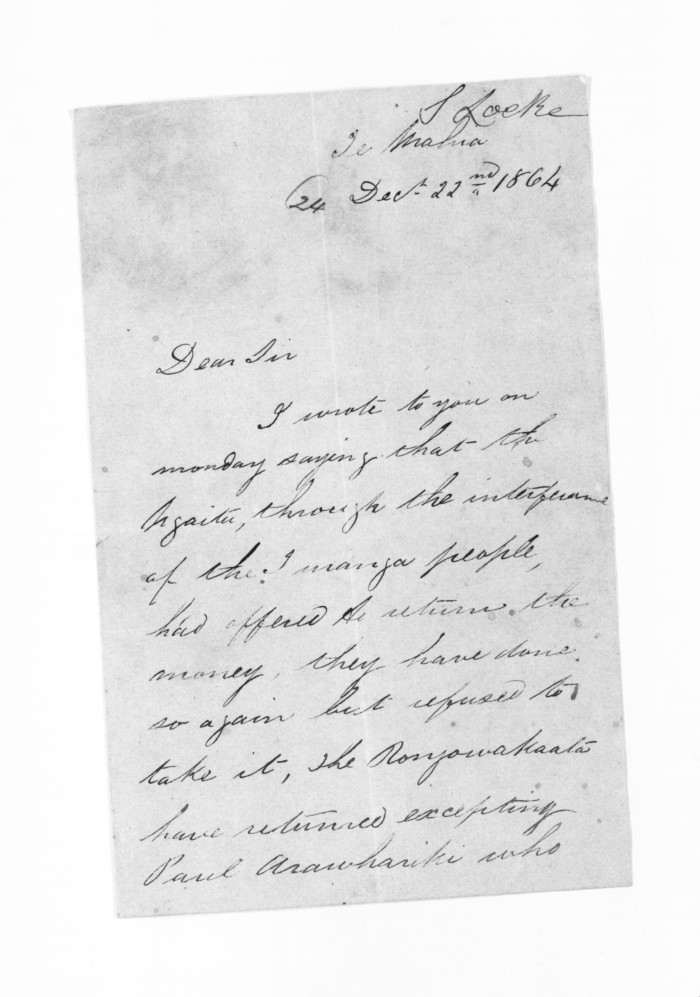 S Locke
Te Mahia
(24 Dect 22nd 1864
Dear Sir
I wrote to you on
monday saying that the
Ngaitu, through the interference
of the I manga people,
had offered to return the
money, they have done
so again but refused to
take it, The Rongowakaata
have returned excepting
Paul Arawhariki who